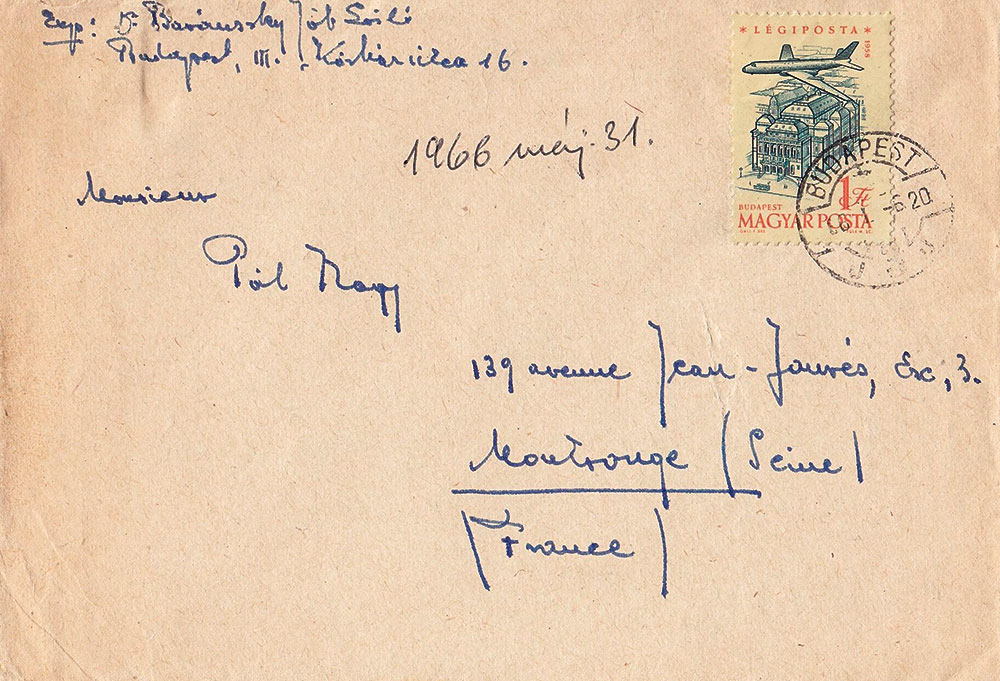 Exp: Dr Baránszky Jób László
Budapest, III., Kórház utca 16.
1966 máj. 31.
Monsieur
Pál Nagy
139 avenue Jean-Jaurès, Esc, 3.
Montrouge (Seine)
(France)
* LÉGIPOSTA *
1958
1 Ft
BUDAPEST
MAGYAR POSTA
BUDAPEST